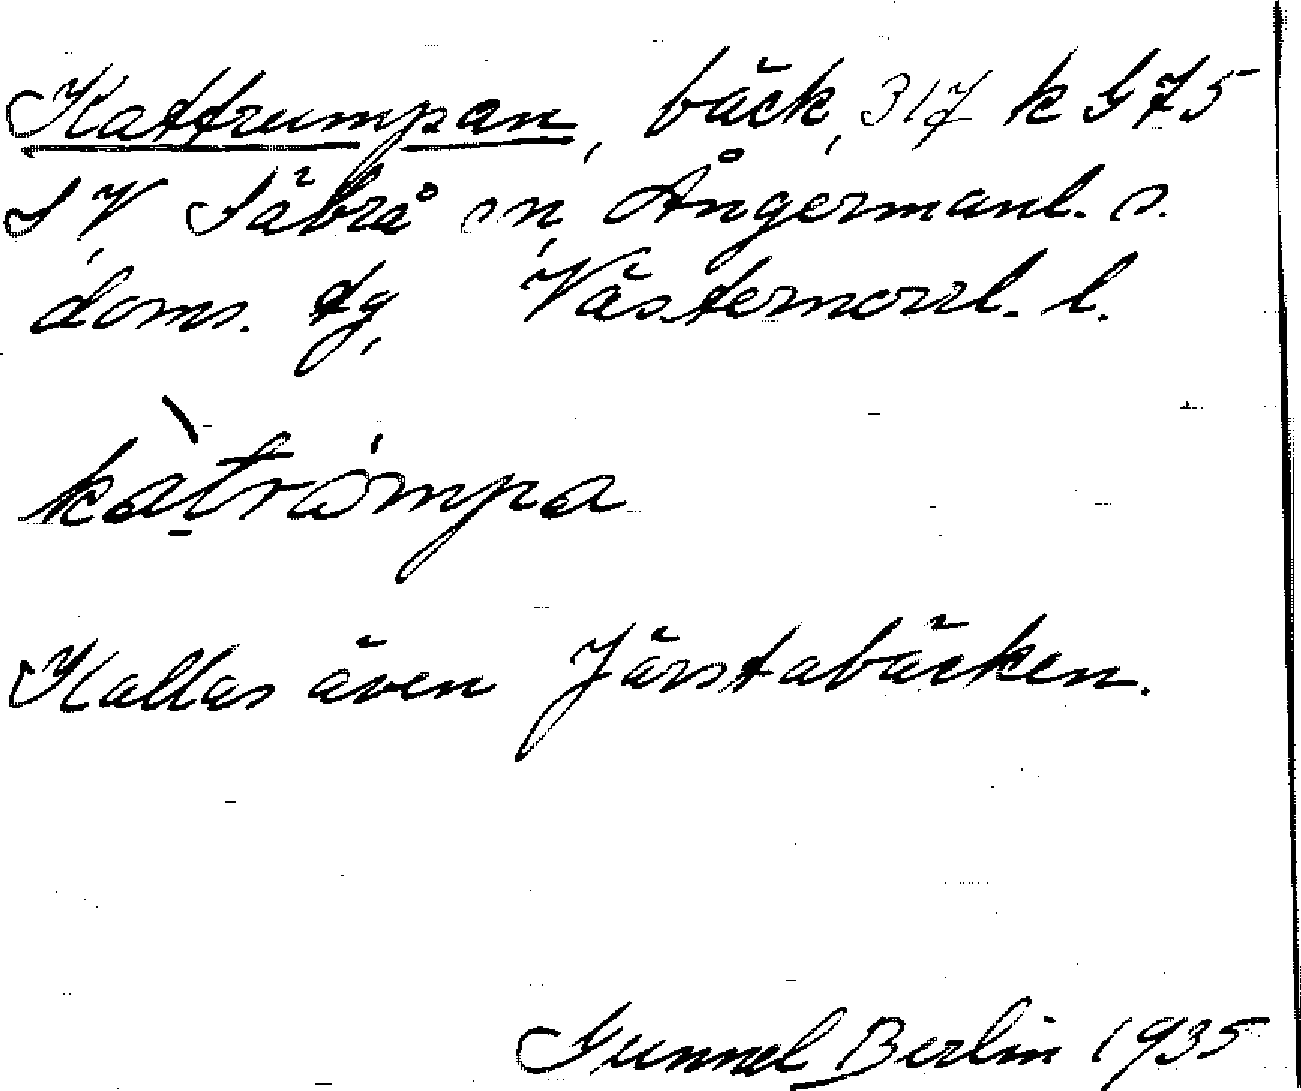 Kattrumpan, bäck, 317 k G 75
SV, Säbrå sn, Ångermanl. s.
doms. tg, Västernorrl. l.
kàtrǻmpa
Kallas även Järstabäcken.
Gunnel Berlin 1935